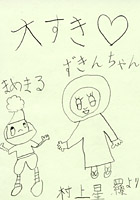 大すき♡
ずきんちゃん
まめまる
村上星羅より